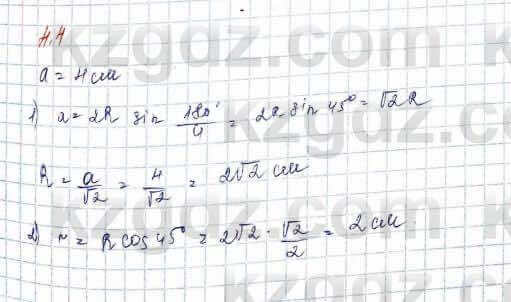 4.4
a = 4 см
1) a = 2R sin 180°/4 = 2R sin 45° = √2R
R = a/√2 = 4/√2 = 2√2 см
2) r = R cos 45° = 2√2 · √2/2 = 2 см.
kzgdz.com